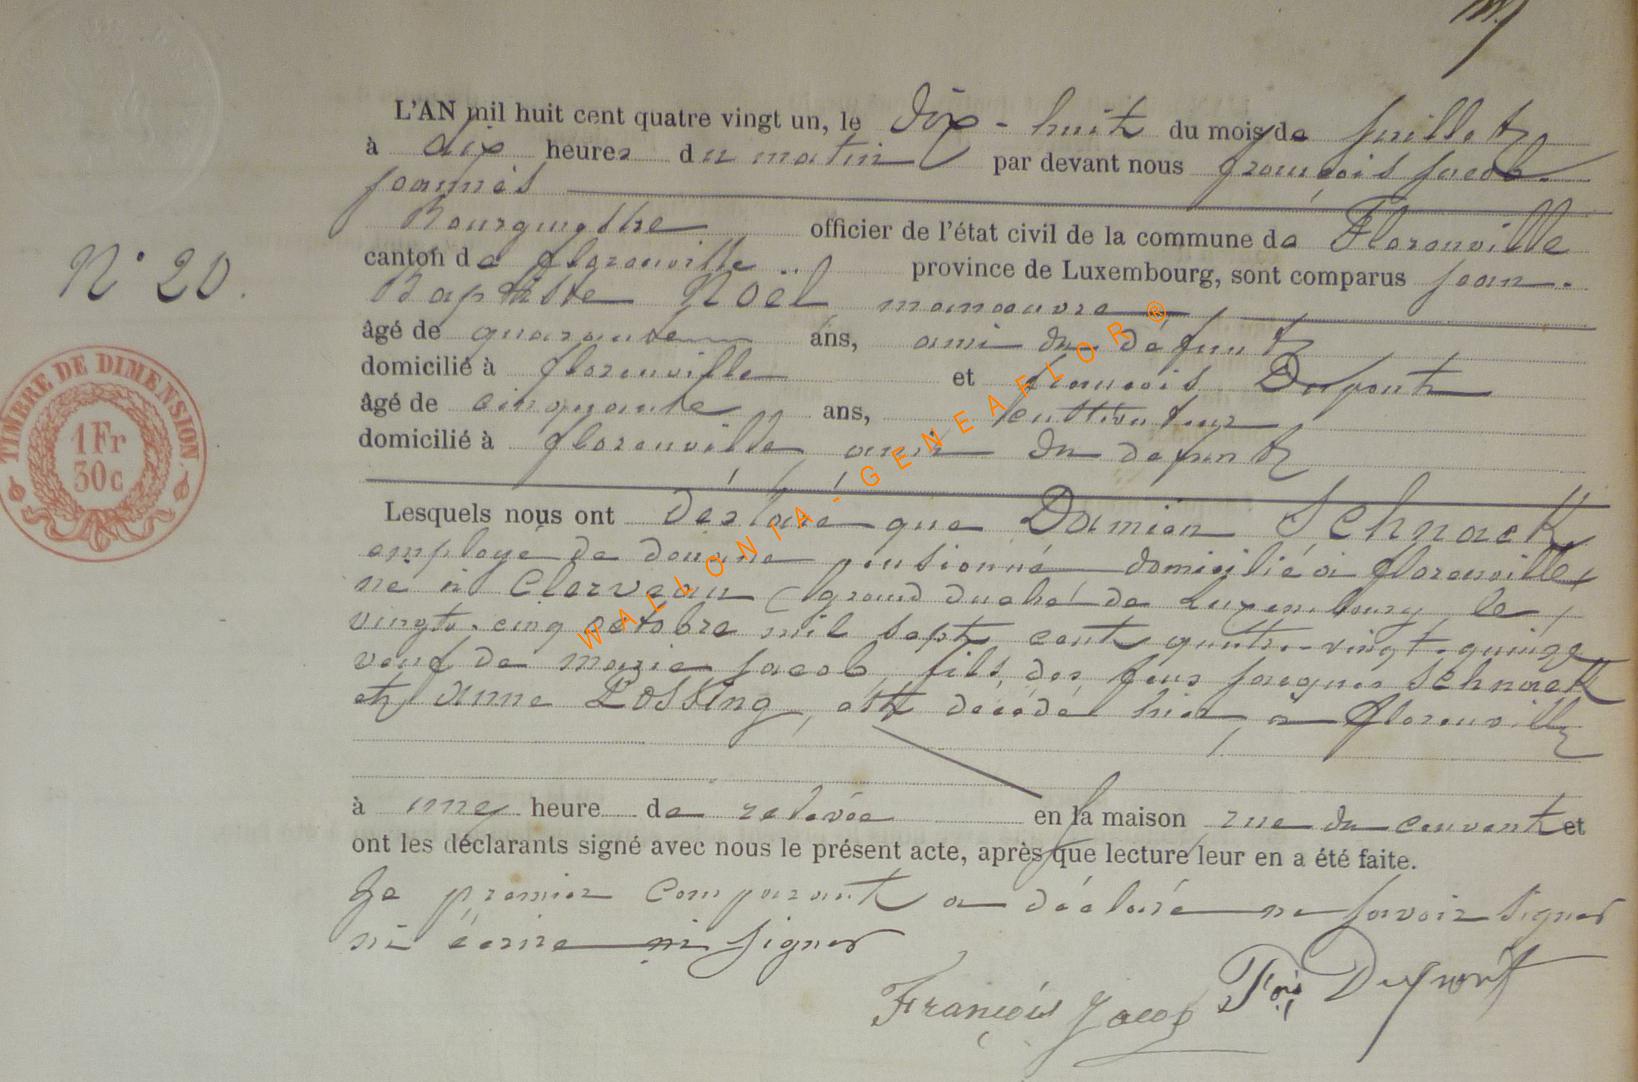 L'AN mil huit cent quatre vingt un, le Dix-huit du mois de juillet
à dix heures du matin par devant nous françois jacob
joannès
Bourgmestre officier de l'état civil de la commune de Florenville
canton de florenville province de Luxembourg, sont comparus jean
Baptiste Noël manoeuvre
N° 20.
âgé de quarante ans, ami du défunt
domicilié à florenville et françois Dupont
âgé de cinquante ans, cultivateur
domicilié à florenville, ami du defunt
TIMBRE DE DIMENSION
1Fr
30c
Lesquels nous ont déclaré que Damien Schnack
employé de douane pensionné domicilié à florenville
né à Clervaux (grand duché de Luxembourg le
vingt-cinq octobre mil sept cent quatre-vingt-quinze
veuf de marie jacob, fils des feus jacques Schnack
et anne Lossing, est décédé hier, à florenville
à une heure de relevée en la maison rue du couvent et
ont les déclarants signé avec nous le présent acte, après que lecture leur en a été faite.
Le premier comparant a déclaré ne savoir signer
ni écrire ni signer
François Jacob Fçois Dupont
WALLONIA-GENEAFLOR®